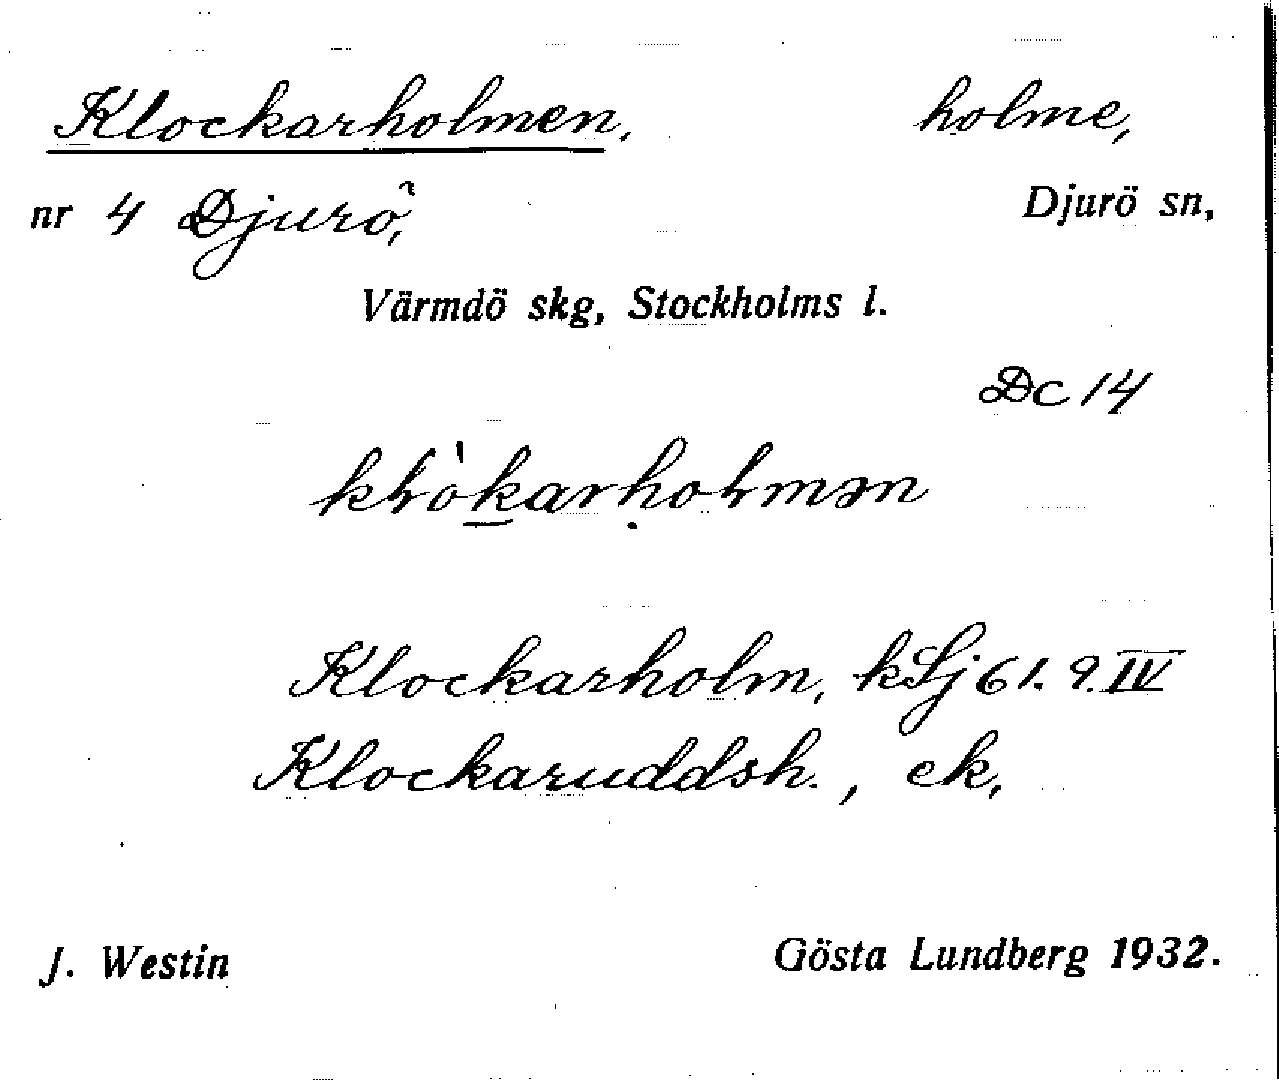 Klockarholmen, holme,
nr 4 Djurö, Djurö sn,
Värmdö skg, Stockholms l.
Dc 14
Klockarholm, kLj 61. 9. IV
Klockaruddsh., ek,
J. Westin Gösta Lundberg 1932.